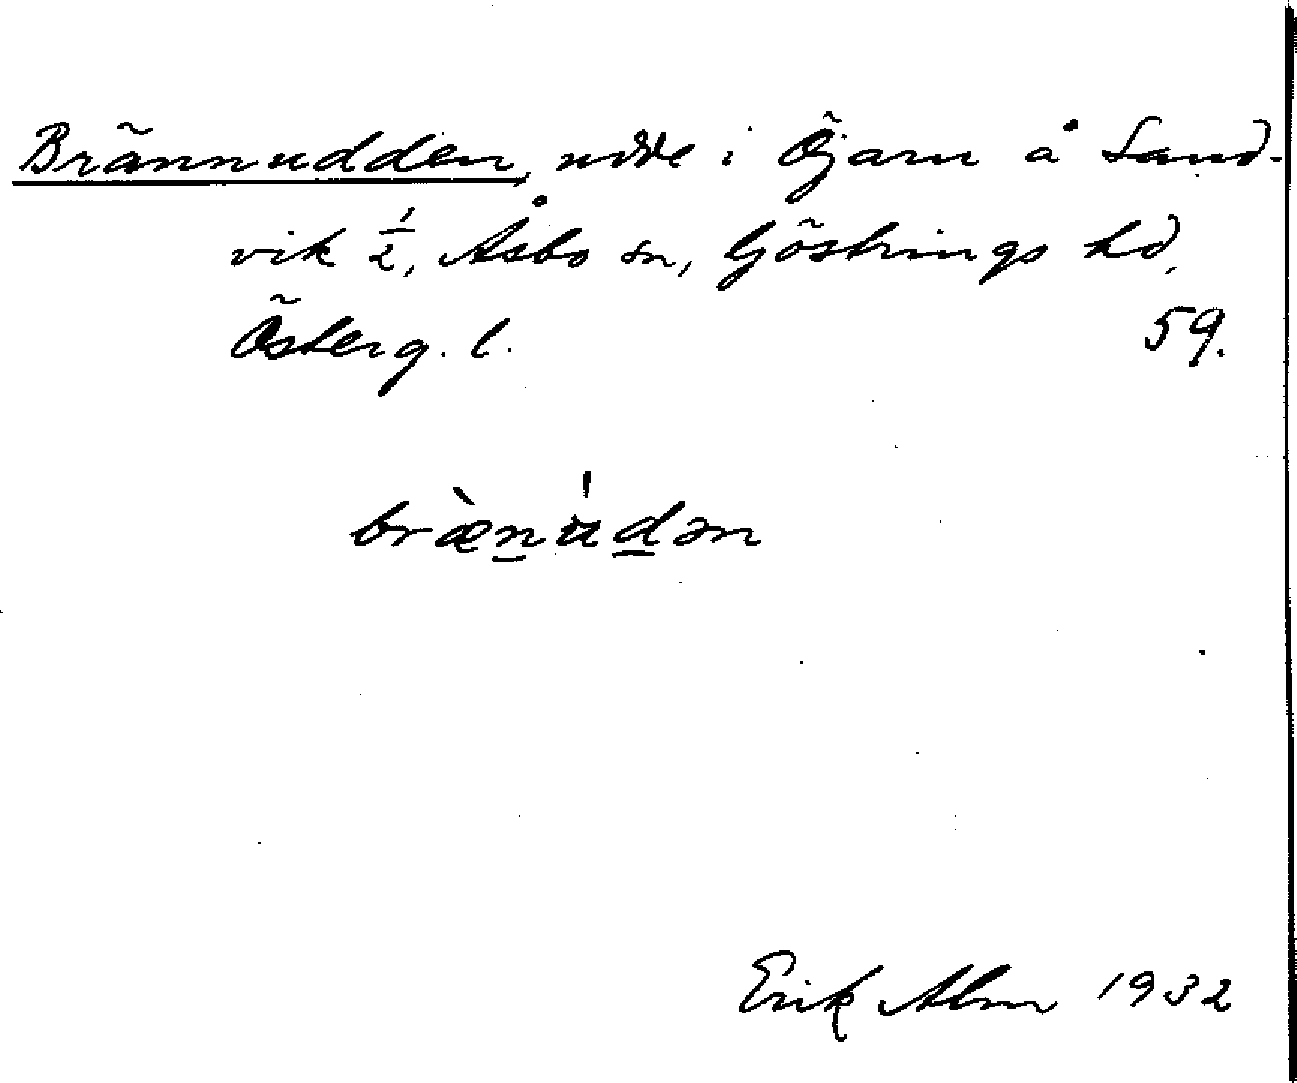 Brännudden, udde i Öjarn å Sand-
vik ½, Åsbo sn, Göstrings hd,
Österg. l. 59.
brænu̇dən
Erik Alm 1932